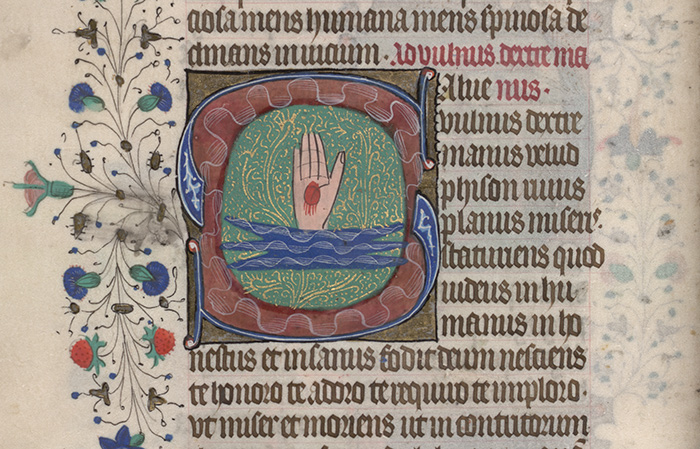 ciosa mens humana mens spinosa de
clinans in vicium. Ad vulnus dextre ma
Salue nus.
vulnus dextre
manus velud
phison vnus
planus miseris
statuuens quod
iudeus in hu
manus in ho
nestus et insanus fodit deum nesciens
te honoro te adoro te requiro te imploro.
vt miser et moriens ut in contutorum